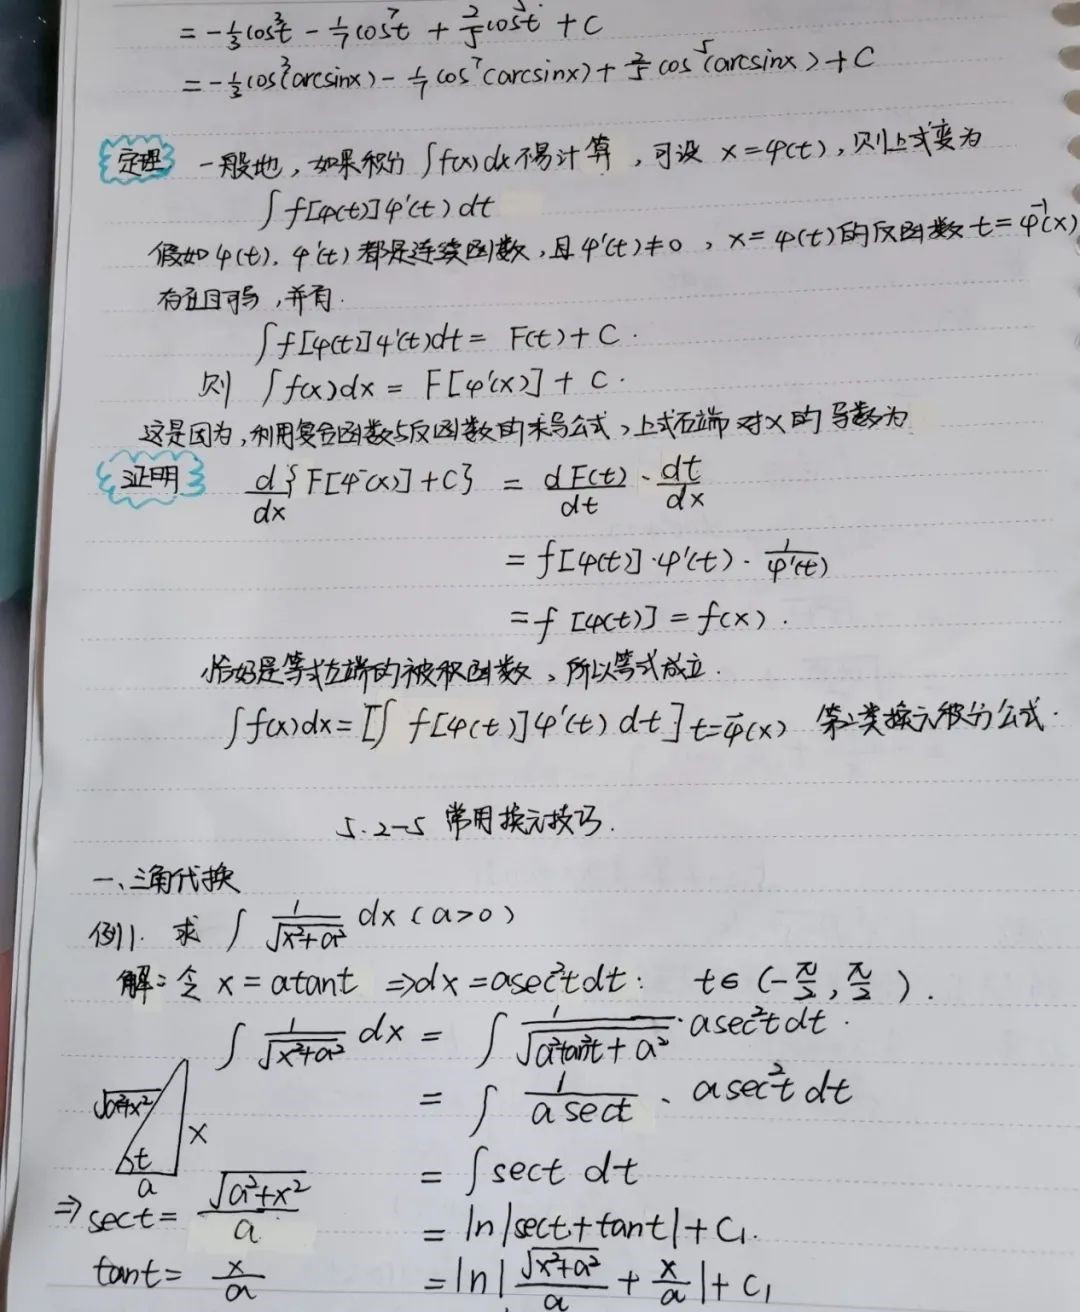 = -1/3 cos³t - 1/7 cos⁷t + 2/5 cos⁵t + C
= -1/3 cos³(arcsinx) - 1/7 cos⁷(arcsinx) + 2/5 cos⁵(arcsinx) + C
定理 一般地，如果积分 ∫f(x)dx 不易计算，可设 x=φ(t)，则上式变为
∫f[φ(t)]φ'(t)dt
假如φ(t), φ'(t)都是连续函数，且φ'(t)≠0，x=φ(t)的反函数t=φ⁻¹(x)
存在且可导，并有.
∫f[φ(t)]φ'(t)dt = F(t)+C.
则 ∫f(x)dx = F[φ'(x)] + C.
这是因为，利用复合函数与反函数的求导公式，上式右端对x的导数为
证明 d/dx {F[φ⁻(x)]+C} = dF(t)/dt · dt/dx
= f[φ(t)]·φ'(t)· 1/φ'(t)
= f[φ(t)] = f(x).
恰好是等式左端的被积函数，所以等式成立.
∫f(x)dx = [∫ f[φ(t)]φ'(t) dt] t=φ⁻(x) 第2类换元积分公式.
5.2-5 常用换元技巧.
一、三角代换
例1. 求 ∫ 1/√(x²+a²) dx (a>0)
解：令 x=atant ⇒ dx=asec²tdt: t∈(-π/2, π/2).
∫ 1/√(x²+a²) dx = ∫ 1/√(a²tan²t+a²) · asec²tdt.
√(a²+x²) x t a
= ∫ 1/(a sect) · asec²t dt
= ∫sect dt
⇒ sect = √(a²+x²)/a
= ln|sect+tant|+C₁.
tant = x/a
= ln|√(x²+a²)/a + x/a|+C₁